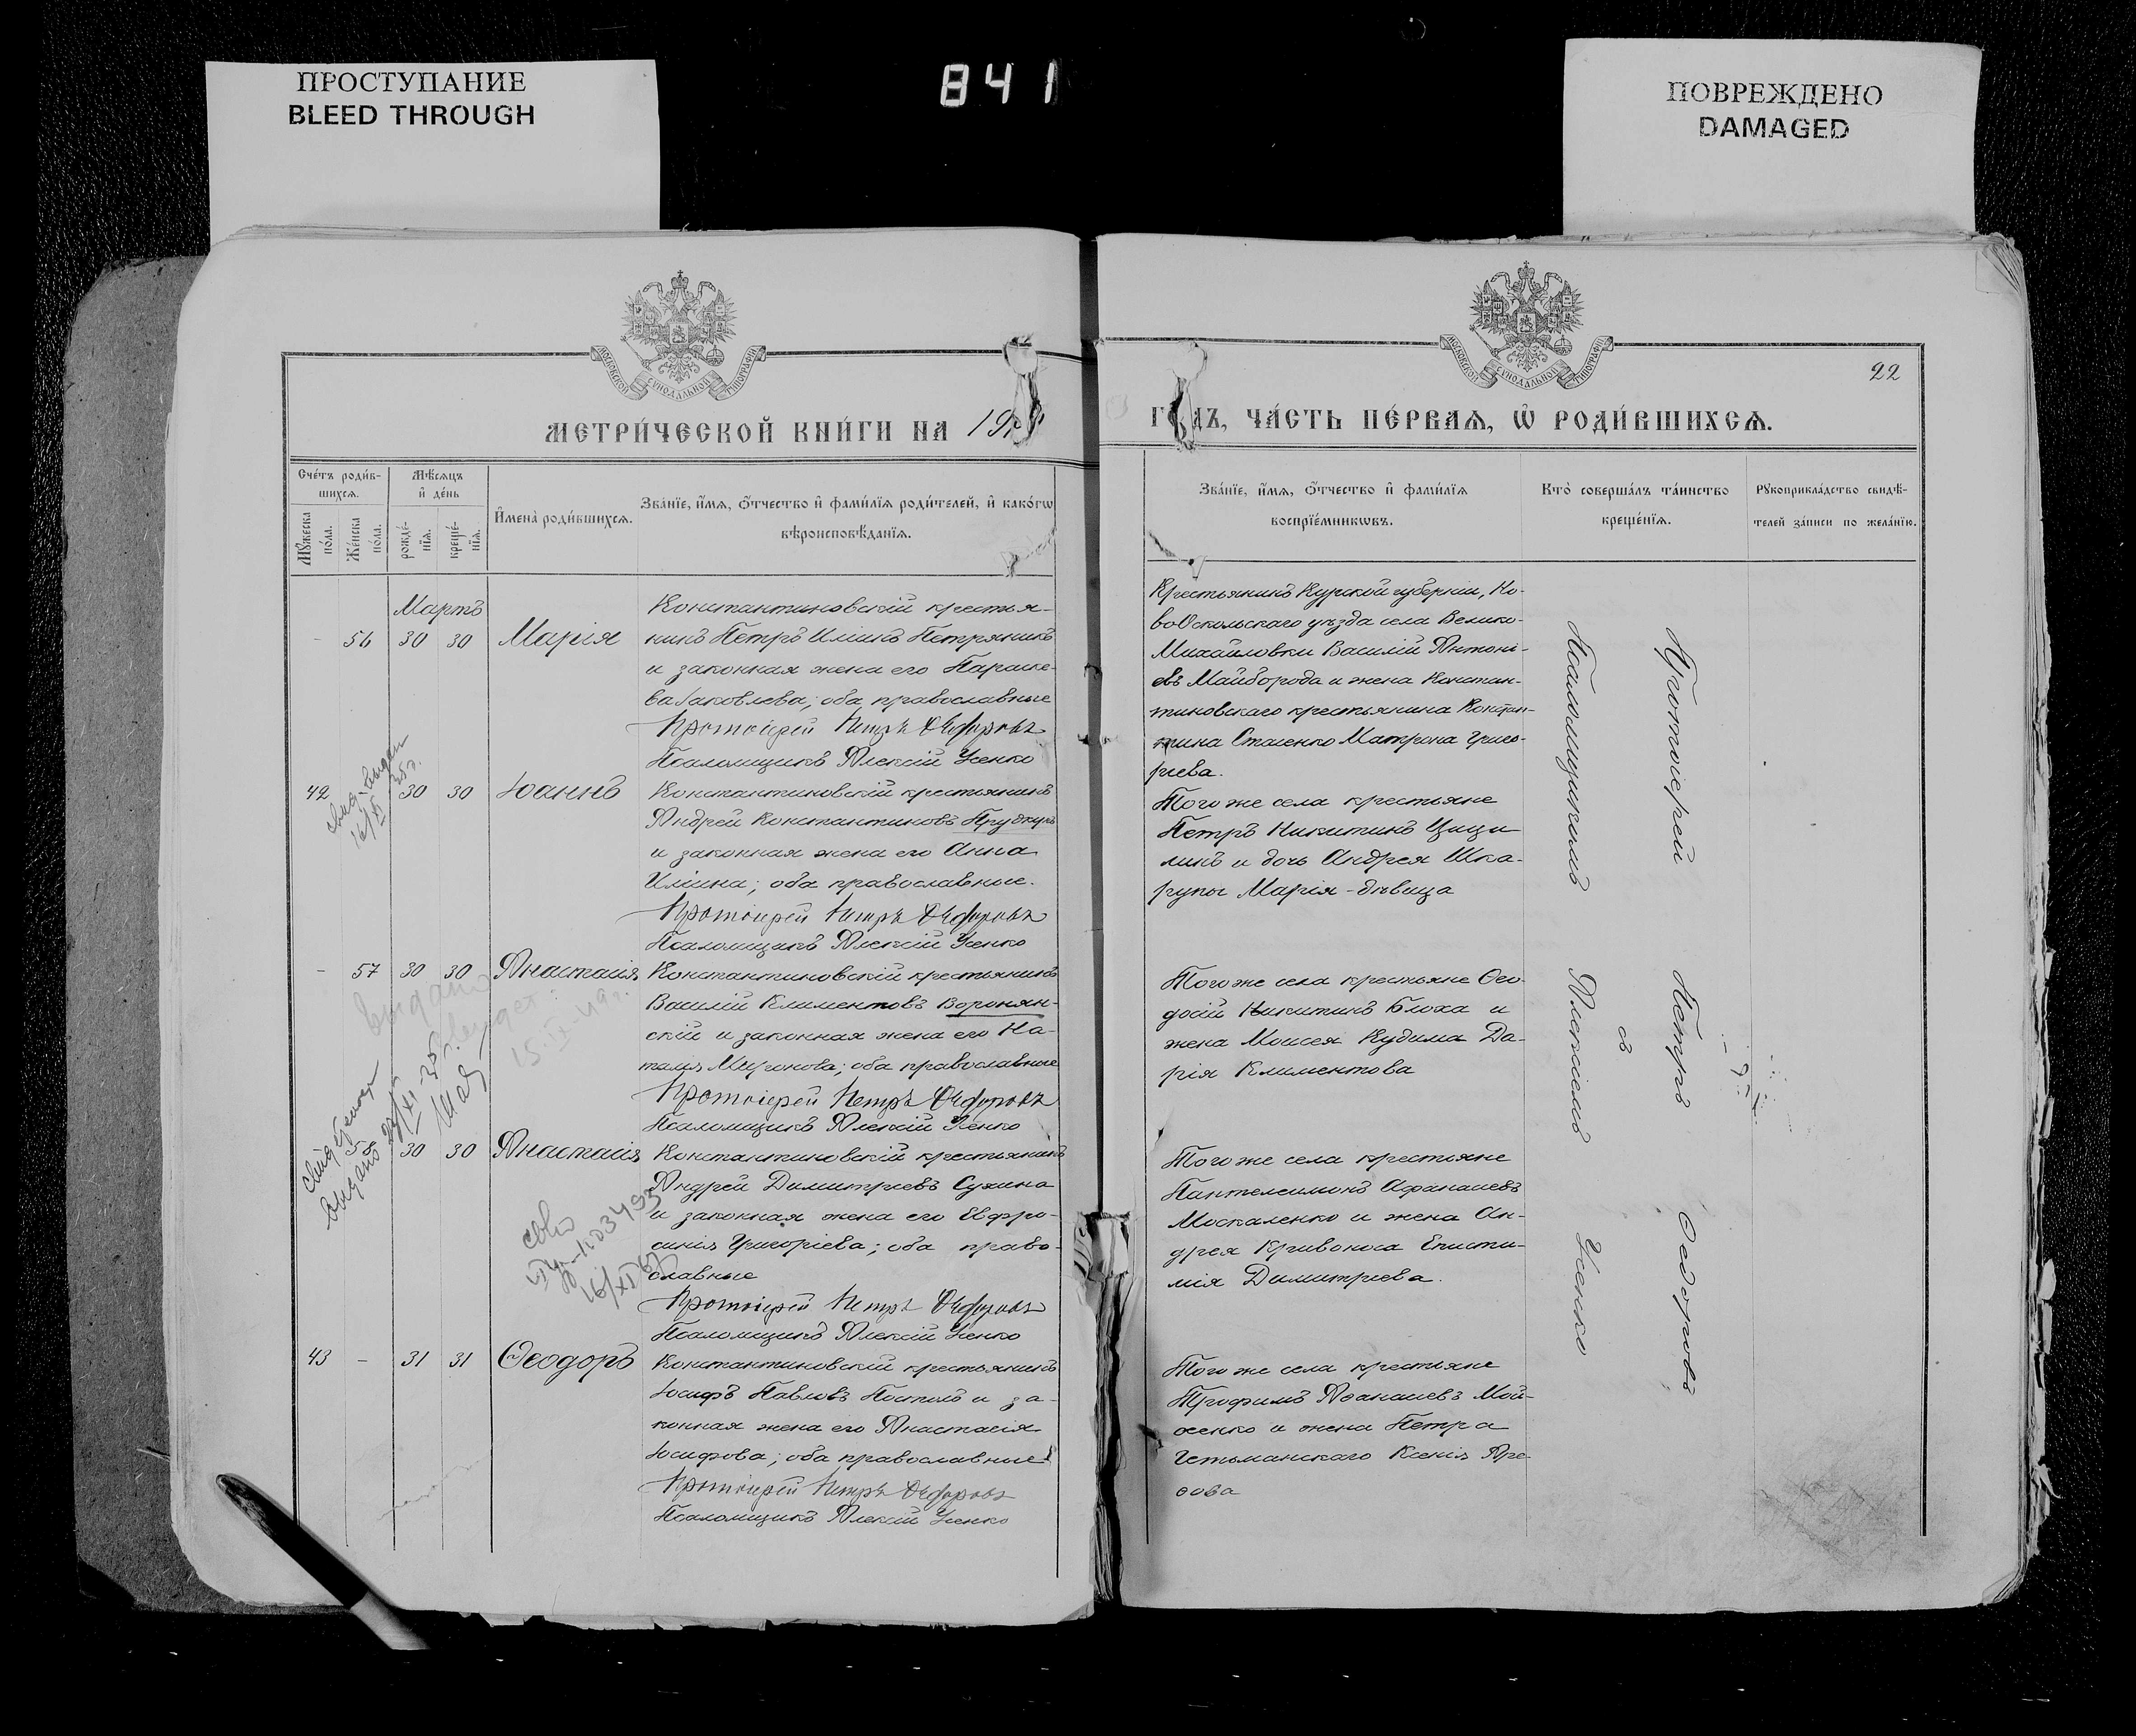 ПРОСТУПАНИЕ
BLEED THROUGH
841
ПОВРЕЖДЕНО
DAMAGED
МОСКОВСКОЙ СѴНОДАЛЬНОЙ ТИПОГРАФІИ
МОСКОВСКОЙ СѴНОДАЛЬНОЙ ТИПОГРАФІИ
22
МЕТРИ́ЧЕСКОЙ КНИ́ГИ НА 19
ГОДЪ, ЧА́СТЬ ПЕ́РВАѦ, Ѽ РОДИ́ВШИХСѦ.
Счéтъ роди́в-
шихсѧ.
Мѣ́сѧцъ
и҆ дéнь
Мꙋ́жеска
пóла.
Жéнска
пóла.
рождé-
нїѧ.
крещé-
нїѧ.
И҆менà роди́вшихсѧ.
Звáнїе, и҆́мѧ, ѻ҆́тчество и҆ фами́лїѧ роди́телей, и҆ какóгѡ
вѣроисповѣ́данїѧ.
Звáнїе, и҆́мѧ, ѻ҆́тчество и҆ фами́лїѧ
воспрїе́мникѡвъ.
Ктò совершáлъ тáинство
крещéнїѧ.
Рꙋкоприклáдство свидѣ́-
телей зáписи по желáнїю.
Мартъ
- 56 30 30 Марія
Константиновскій крестья-
нинъ Петръ Иліинъ Петряникъ
и законная жена его Параске-
ва Іаковлева; оба православные
Протоіерей Петръ Ѳедоровъ
Псаломщикъ Алексій Усенко
Крестьянинъ Курской губерніи, Но-
воОскольскаго уѣзда села Велико-
Михайловки Василій Антоні-
евъ Майборода и жена Констан-
тиновскаго крестьянина Констан-
тина Стаенко Матрона Григо-
ріева.
42 30 30 Іоаннъ
Константиновскій крестьянинъ
Андрей Константиновъ
и законная жена его Анна
Иліина; оба православные.
Протоіерей Петръ Ѳедоровъ
Псаломщикъ Алексій Усенко
Того же села крестьяне
Петръ Никитинъ Цици
линъ и дочь Андрея Шка-
рупы Марія - дѣвица
- 57 30 30 Анастасія
Константиновскій крестьянинъ
Василій Климентовъ Воронян-
скій и законная жена его На-
талія Миронова; оба православные
Протоіерей Петръ Ѳедоровъ
Псаломщикъ Алексій Усенко
Того же села крестьяне Ѳео-
досій Никитинъ Блоха и
жена Моисея Кудима Да-
рія Климентова
выдано
15-IX-49г.
58 30 30 Анастасія
Константиновскій крестьянинъ
Андрей Димитріевъ Сухина
и законная жена его Евфро-
синія Григоріева; оба право-
славные
Протоіерей Петръ Ѳедоровъ
Псаломщикъ Алексій Усенко
Того же села крестьяне
Пантелеимонъ Афанасіевъ
Москаленко и жена Ан-
дрея Кривоноса Еписти-
мія Димитріева.
43 - 31 31 Ѳеодоръ
Константиновскій крестьянинъ
Іосифъ Павловъ и за-
конная жена его Анастасія
Іосифова; оба православные
Протоіерей Петръ Ѳедоровъ
Псаломщикъ Алексій Усенко
Того же села крестьяне
Трофимъ Аѳанасіевъ Мой-
сенко и жена Петра
Гетьманскаго Ксенія
Протоіерей Петръ Ѳедоровъ
съ
Псаломщикомъ Алексіемъ Усенко